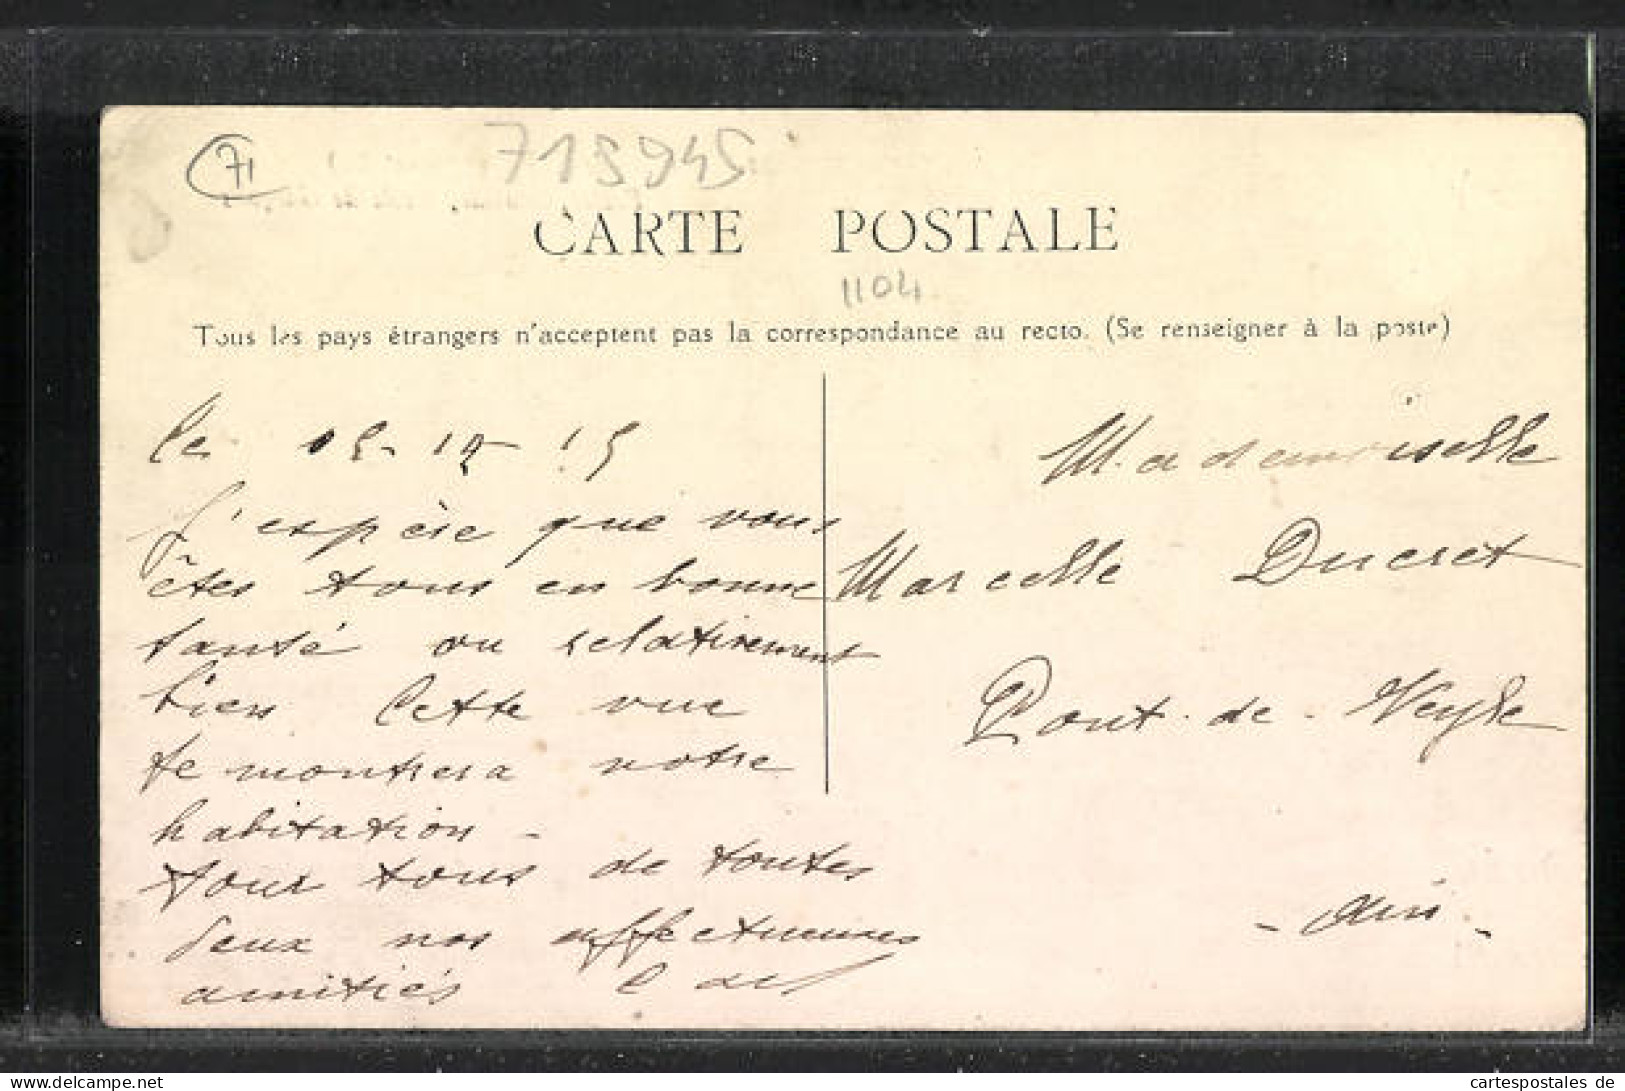 71
715945
CARTE POSTALE
1104
Tous les pays étrangers n'acceptent pas la correspondance au recto. (Se renseigner à la poste)
le 15-12 15
J'espère que vous
êtes tous en bonne
santé ou relativement
bien Cette vue
te montrera notre
habitation -
Pour tous de toutes
deux nos affectueuses
amitiés
Mademoiselle
Marcelle Ducret
Pont-de-Veyle
- Ain -
cartespostales de